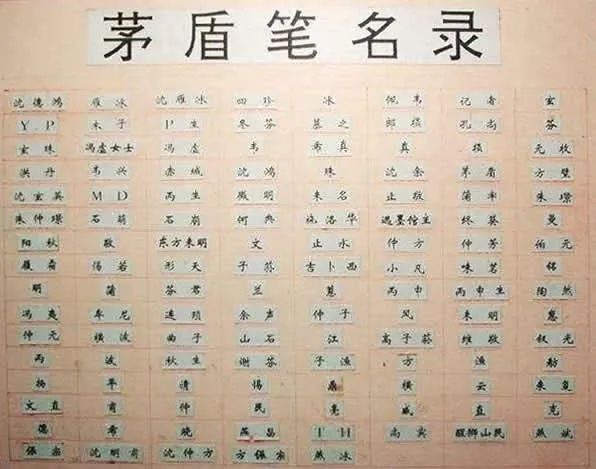 茅盾笔名录
沈德鸿 雁冰 沈雁冰 四珍 冰 佩韦 记者 玄
Y.P 木子 P生 冬芬 慕之 郎损 孔常 芬
玄珠 冯虚女士 冯虚 韦 希真 真 损 元枚
洪丹 韦兴 赤城 沈鸿 珠 沈余 茅盾 方璧
沈玄英 MD 丙生 微明 未名 止敬 蒲牢 朱璟
朱仲璟 石萌 石崩 何典 施洛华 逃墨馆主 终葵 曼
阳秋 敬 东方未明 文 止水 仲方 仲芳 伯元
雁斋 惕若 形天 子荪 吉卜西 小凡 味茗 铭
明 蒲 芬君 兰 蕙 丙申 丙申生 陶然
冯夷 牟尼 连琐 余声 仲子 风 未明 惠
仲元 横波 曲子 山石 江 高子荪 维敬 叔元
丙 波 秋生 谢芬 子渔 方 渔 劫
杨 平 清 惕 鼎 横 云 来复
文直 甫 仲 民 亮 威 直 克
德 希 晓 燕昌 TH 高宾 醒狮山民 燕斌
保宗 沈明甫 沈仲方 方保宗 燕冰